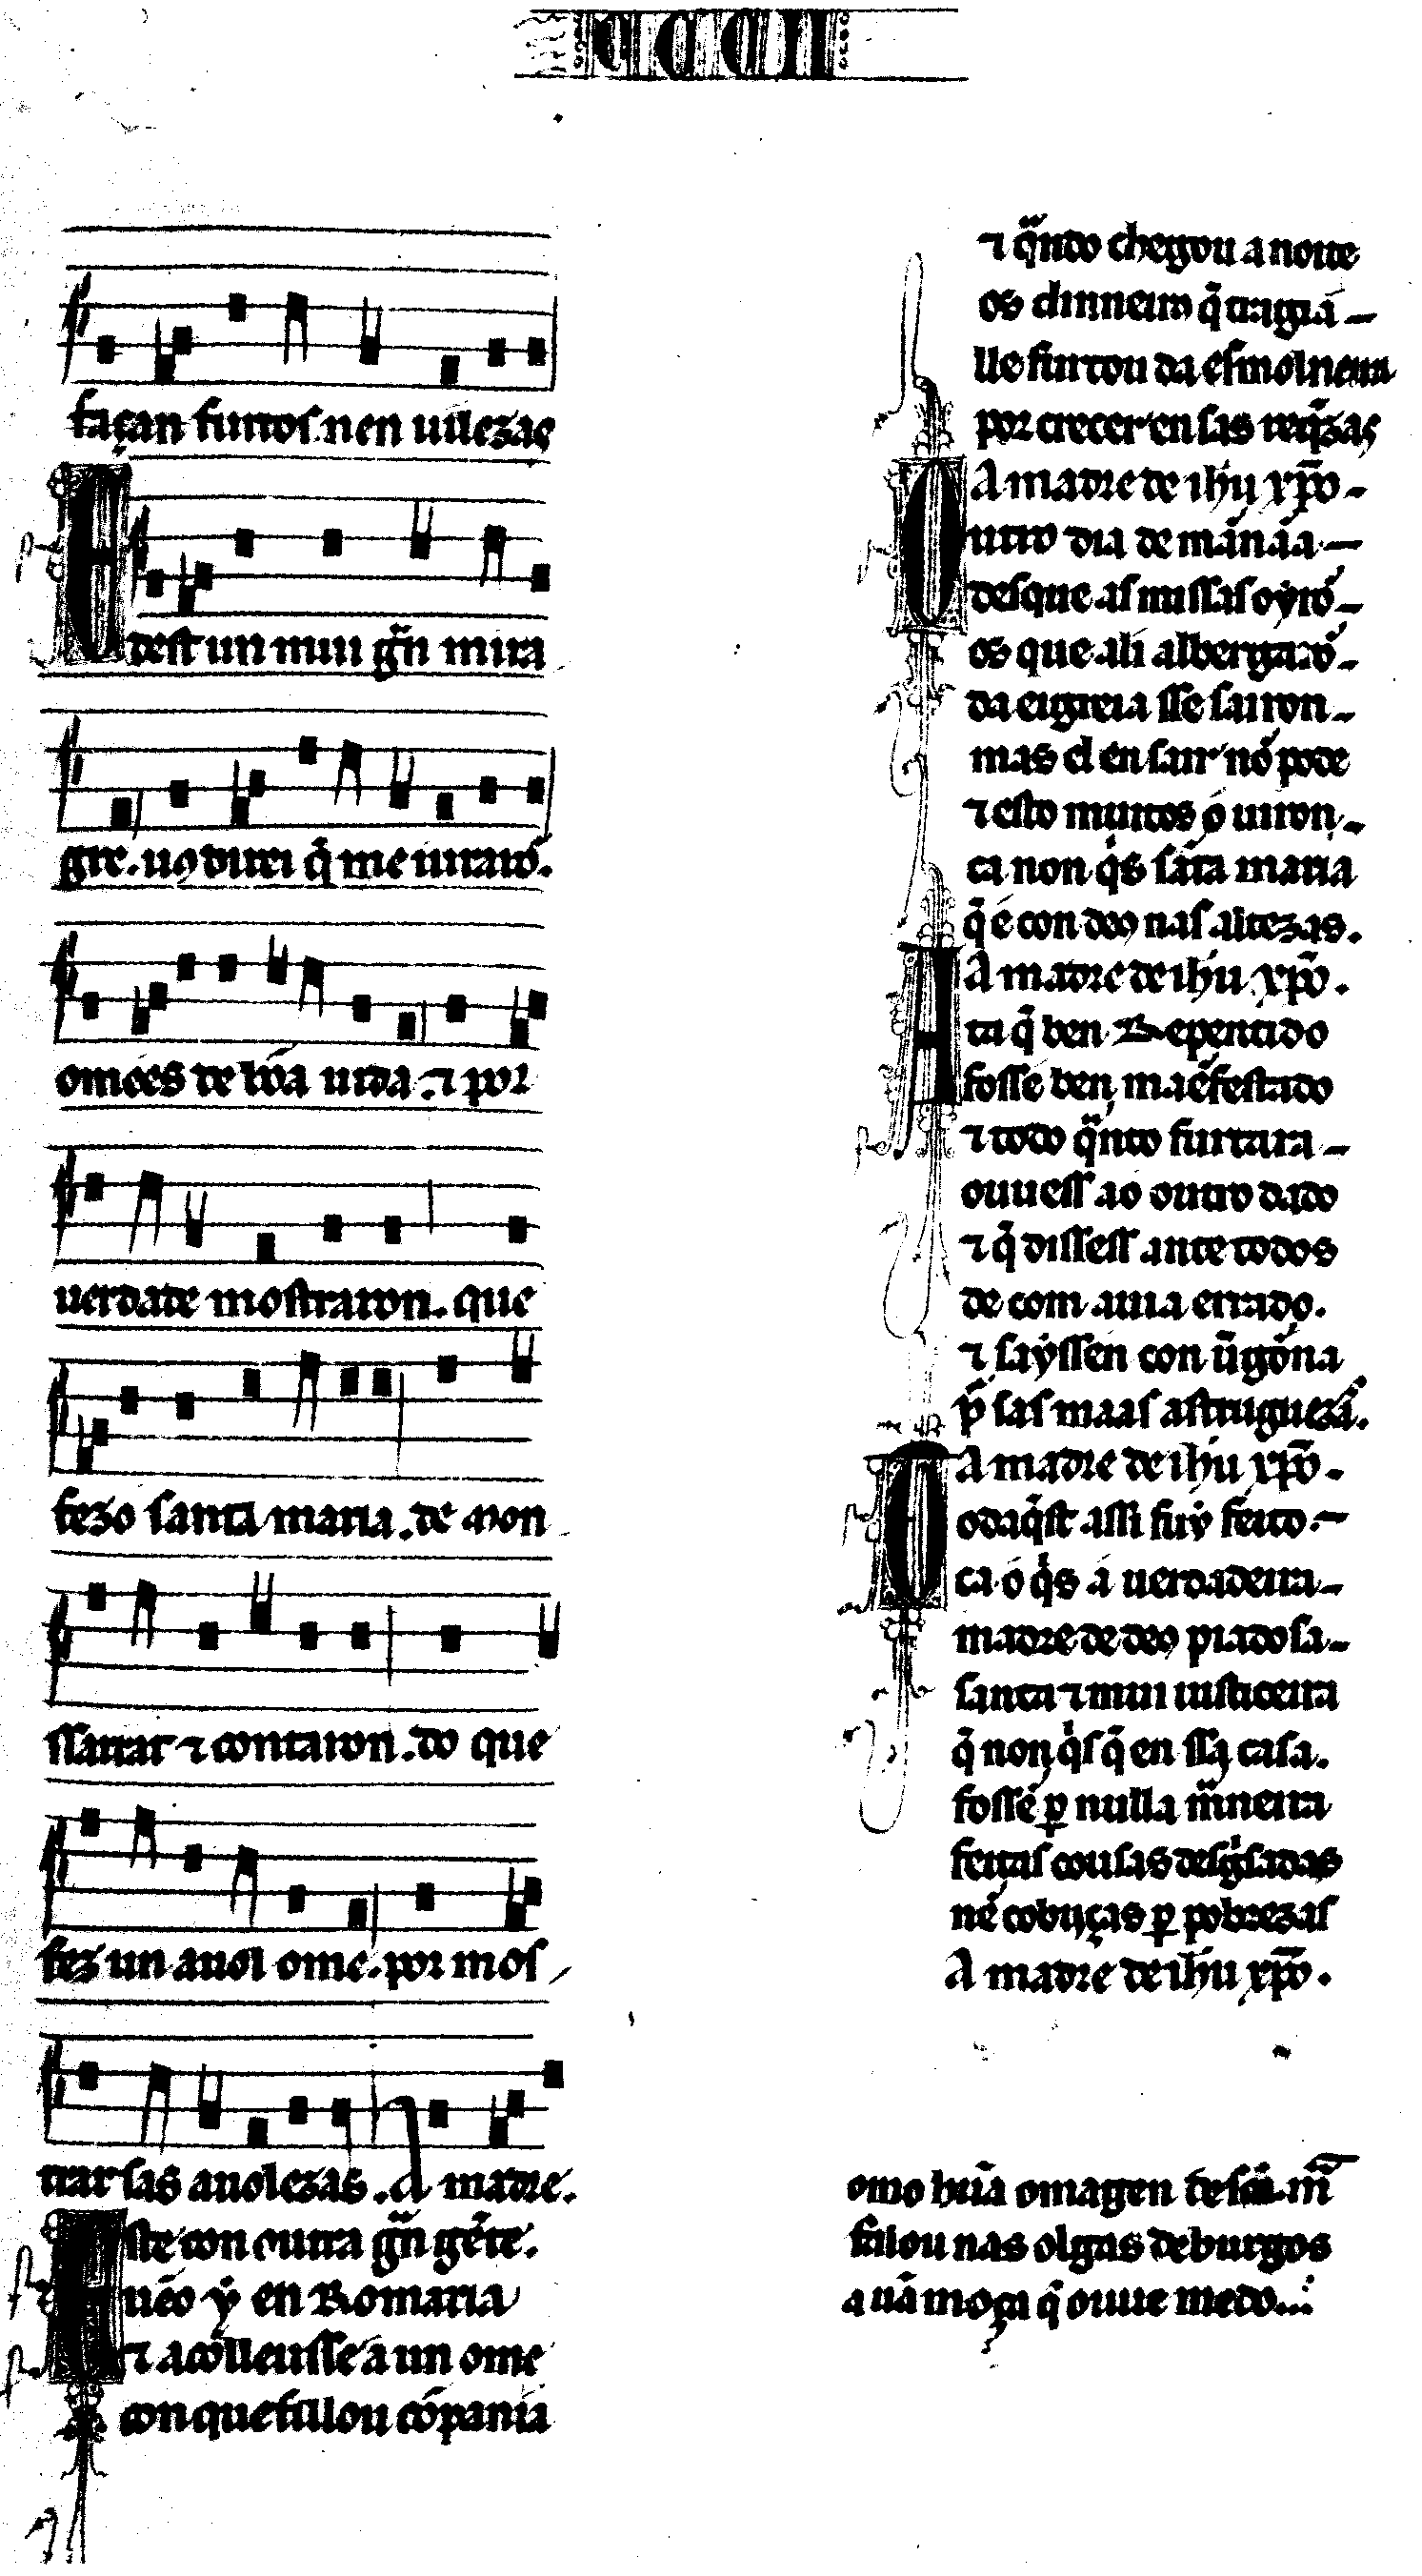 façan furtos nen uilezas
E dest un mui gñ mira
gre. uos direi q̄ me iuraro᷑.
omẽes de bõa uida. ⁊ por
uerdate mostraron. que
fezo santa maria. de mon
ssarrar ⁊ contaron. do que
fez un auol ome. por mos
trar sas auolezas. A madre.
Este con outra gñ gẽte.
uẽo ẏ en Romaria
⁊ acolleusse a un ome
con que fillou cõpania
⁊ q̃ndo chegou a noite
os dinneiro q̄ tragia
lle furtou da esmolneira
por crecer en sas req̃zas
A madre de ihũ xp̄o.
Outro dia de mãnãa
desque as missas oyrõ
os que ali albergarõ
da eigreia sse sairon
mas el en sair nõ pode
⁊ esto muitos o uiron
ca non q̇s sãta maria
q̄ é con deos nas altezas.
A madre de ihũ xp̄o.
Ata q̄ ben Repentido
fosse ben maẽfestado
⁊ todo q̃nto furtara
ouuess ao outro dado
⁊ q̄ dissess ante todos
de com auia errado.
⁊ sayssen con ũgõna
p̃ sas maas astruguezas.
A madre de ihũ xp̄o.
Todaq̇st assi fuy feito.
ca o q̇s a uerdadeira
madre de deos piadosa
santa ⁊ mui iusticeira
q̄ non q̇s q̄ en ssa casa.
fosse ꝑ nulla m̃neira
feitas cousas desġsadas
nẽ cobijças ꝑ pobrezas
A madre de ihũ xp̄o.
omo hũa omagen de sc̃a. m̄
fillou nas olgas de burgos
a ũa moça q̄ ouue medo...